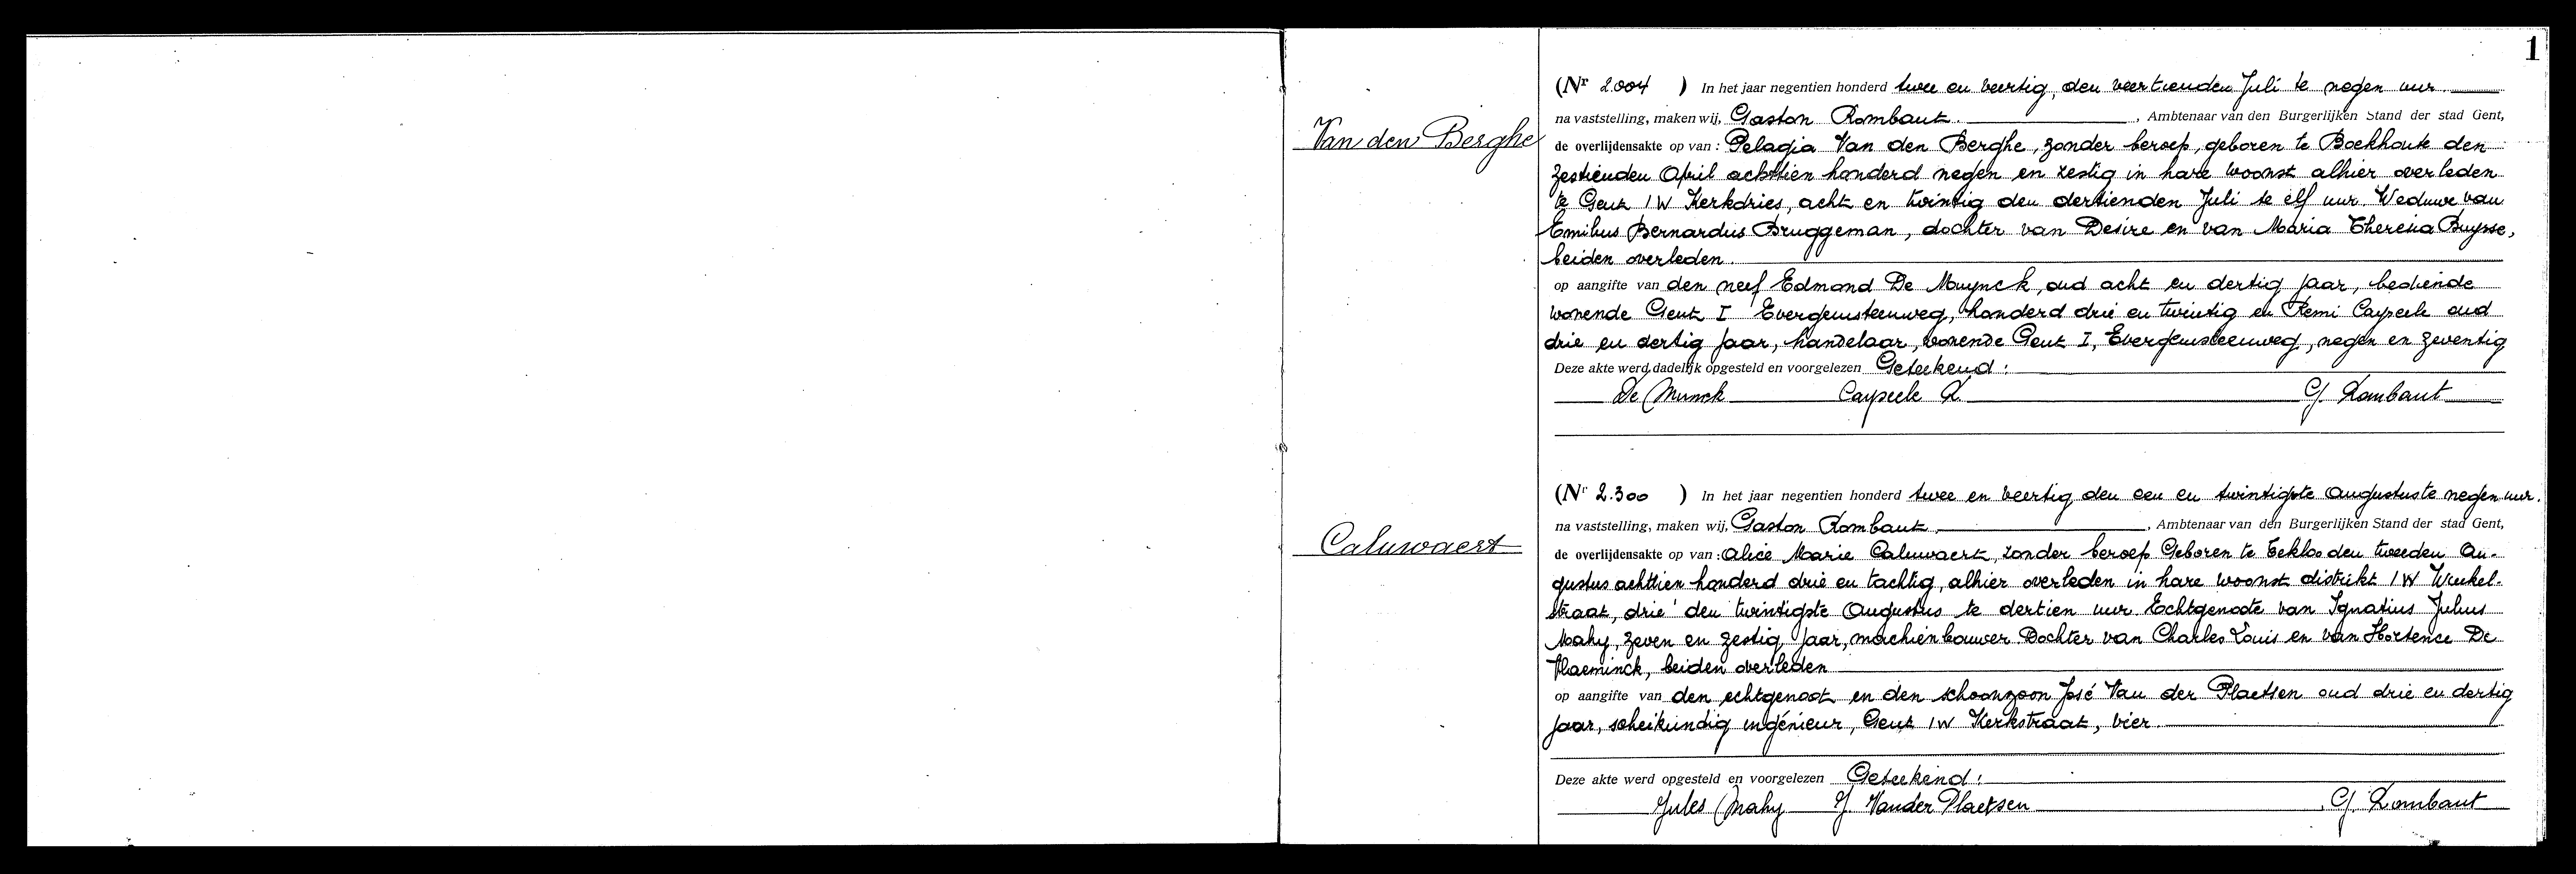 1
Van den Berghe
(Nr 2.004 ) In het jaar negentien honderd twee en veertig, den veertienden Juli te negen uur.
na vaststelling, maken wij, Gaston Rombaut. , Ambtenaar van den Burgerlijken Stand der stad Gent,
de overlijdensakte op van : Pelagia Van den Berghe, zonder beroep, geboren te Boekhoute den
zestienden April achttien honderd negen en zestig in hare woonst alhier overleden
te Gent 1W Kerkdries, acht en twintig den dertienden Juli te elf uur. Weduwe van
Emilius Bernardus Bruggeman, dochter van Desire en van Maria Theresia Buysse,
beiden overleden.
op aangifte van den neef Edmond De Muynck, oud acht en dertig jaar, bediende
wonende Gent I Evergemsteenweg, honderd drie en twintig en Remi Cayseele oud
drie en dertig jaar, handelaar, wonende Gent I, Evergemsteenweg, negen en zeventig
Deze akte werd dadelijk opgesteld en voorgelezen Geteekend :
De Munck Cayseele R. G. Rombaut
Caluwaert
(Nr 2.300 ) In het jaar negentien honderd twee en veertig den een en twintigste Augustus te negen uur.
na vaststelling, maken wij, Gaston Rombaut. , Ambtenaar van den Burgerlijken Stand der stad Gent,
de overlijdensakte op van : Alice Marie Caluwaert, zonder beroep Geboren te Eekloo den tweeden Au-
gustus achttien honderd drie en tachtig, alhier overleden in hare woonst distrikt 1W Winkel-
straat, drie den twintigste Augustus te dertien uur. Echtgenoote van Ignatius Julius
Mahy, zeven en zestig jaar, machienbouwer Dochter van Charles Louis en van Hortence De
Vlaeminck, beiden overleden
op aangifte van den echtgenoot en den schoonzoon José Van der Plaetsen oud drie en dertig
jaar, scheikundig ingénieur, Gent 1W Kerkstraat, vier.
Deze akte werd opgesteld en voorgelezen Geteekend :
Jules Mahy J. Vander Plaetsen G. Rombaut